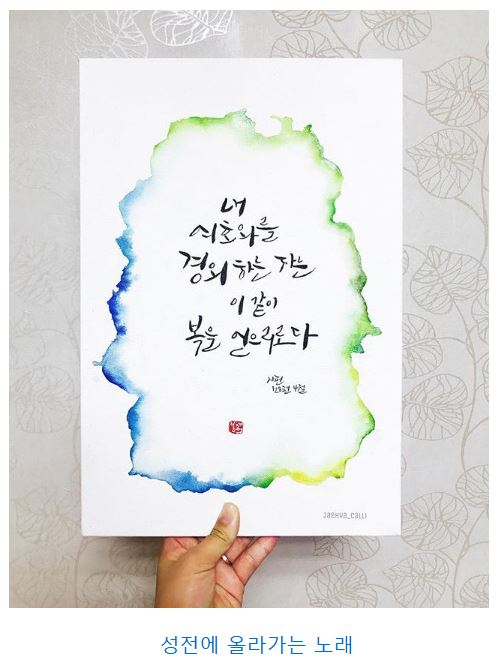 내
여호와를
경외하는 자는
이 같이
복을 얻으리로다
시편
128편 4절
JaeHwa_CaLLI
성전에 올라가는 노래